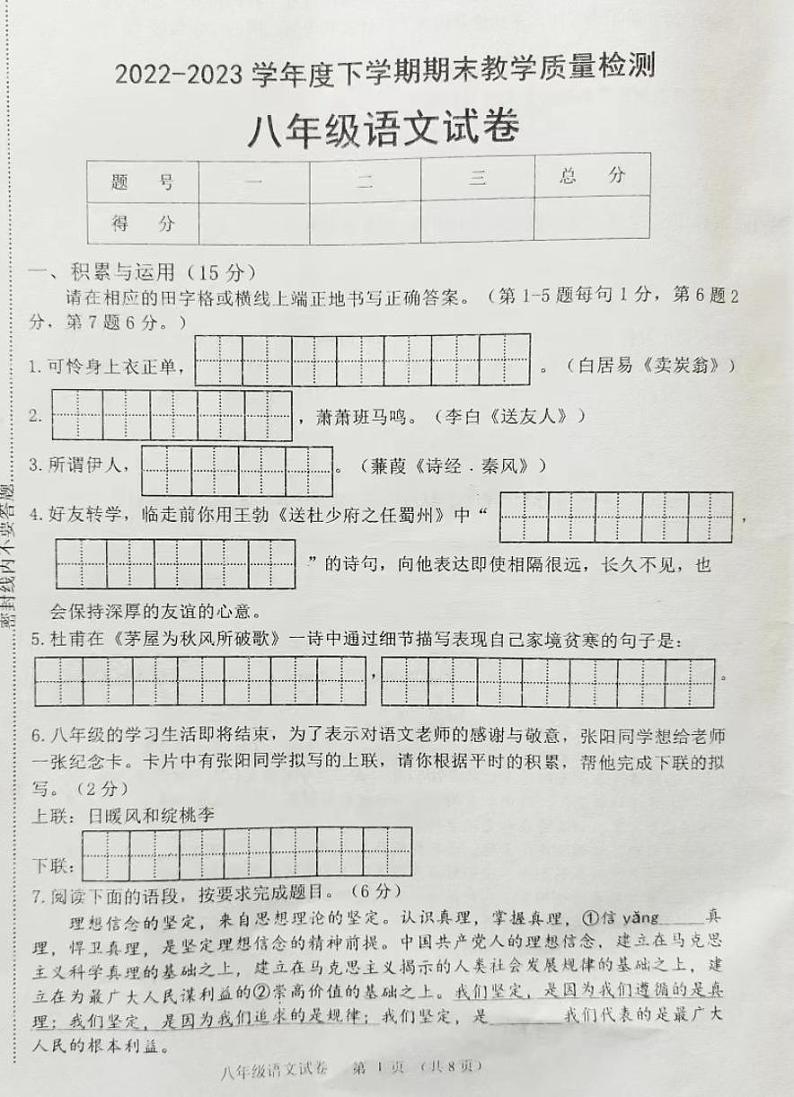 2022-2023 学年度下学期期末教学质量检测
八年级语文试卷
题 号 一 二 三 总 分
得 分
一、积累与运用（15 分）
请在相应的田字格或横线上端正地书写正确答案。（第 1-5 题每句 1 分，第 6 题 2
分，第 7 题 6 分。）
1. 可怜身上衣正单， 。（白居易《卖炭翁》）
2. ，萧萧班马鸣。（李白《送友人》）
3. 所谓伊人， 。（蒹葭《诗经·秦风》）
4. 好友转学，临走前你用王勃《送杜少府之任蜀州》中“ ，
”的诗句，向他表达即使相隔很远，长久不见，也
会保持深厚的友谊的心意。
5. 杜甫在《茅屋为秋风所破歌》一诗中通过细节描写表现自己家境贫寒的句子是：
， 。
6. 八年级的学习生活即将结束，为了表示对语文老师的感谢与敬意，张阳同学想给老师
一张纪念卡。卡片中有张阳同学拟写的上联，请你根据平时的积累，帮他完成下联的拟
写。（2 分）
上联：日暖风和绽桃李
下联：
7. 阅读下面的语段，按要求完成题目。（6 分）
理想信念的坚定，来自思想理论的坚定。认识真理，掌握真理，①信 yǎng_____真
理，悍卫真理，是坚定理想信念的精神前提。中国共产党人的理想信念，建立在马克思
主义科学真理的基础之上，建立在马克思主义揭示的人类社会发展规律的基础之上，建
立在为最广大人民谋利益的②崇高价值的基础之上。我们坚定，是因为我们遵循的是真
理；我们坚定，是因为我们追求的是规律；我们坚定，是________我们代表的是最广大
人民的根本利益。
八年级语文试卷 第 1 页 （共 8 页）
密封线内不要答题